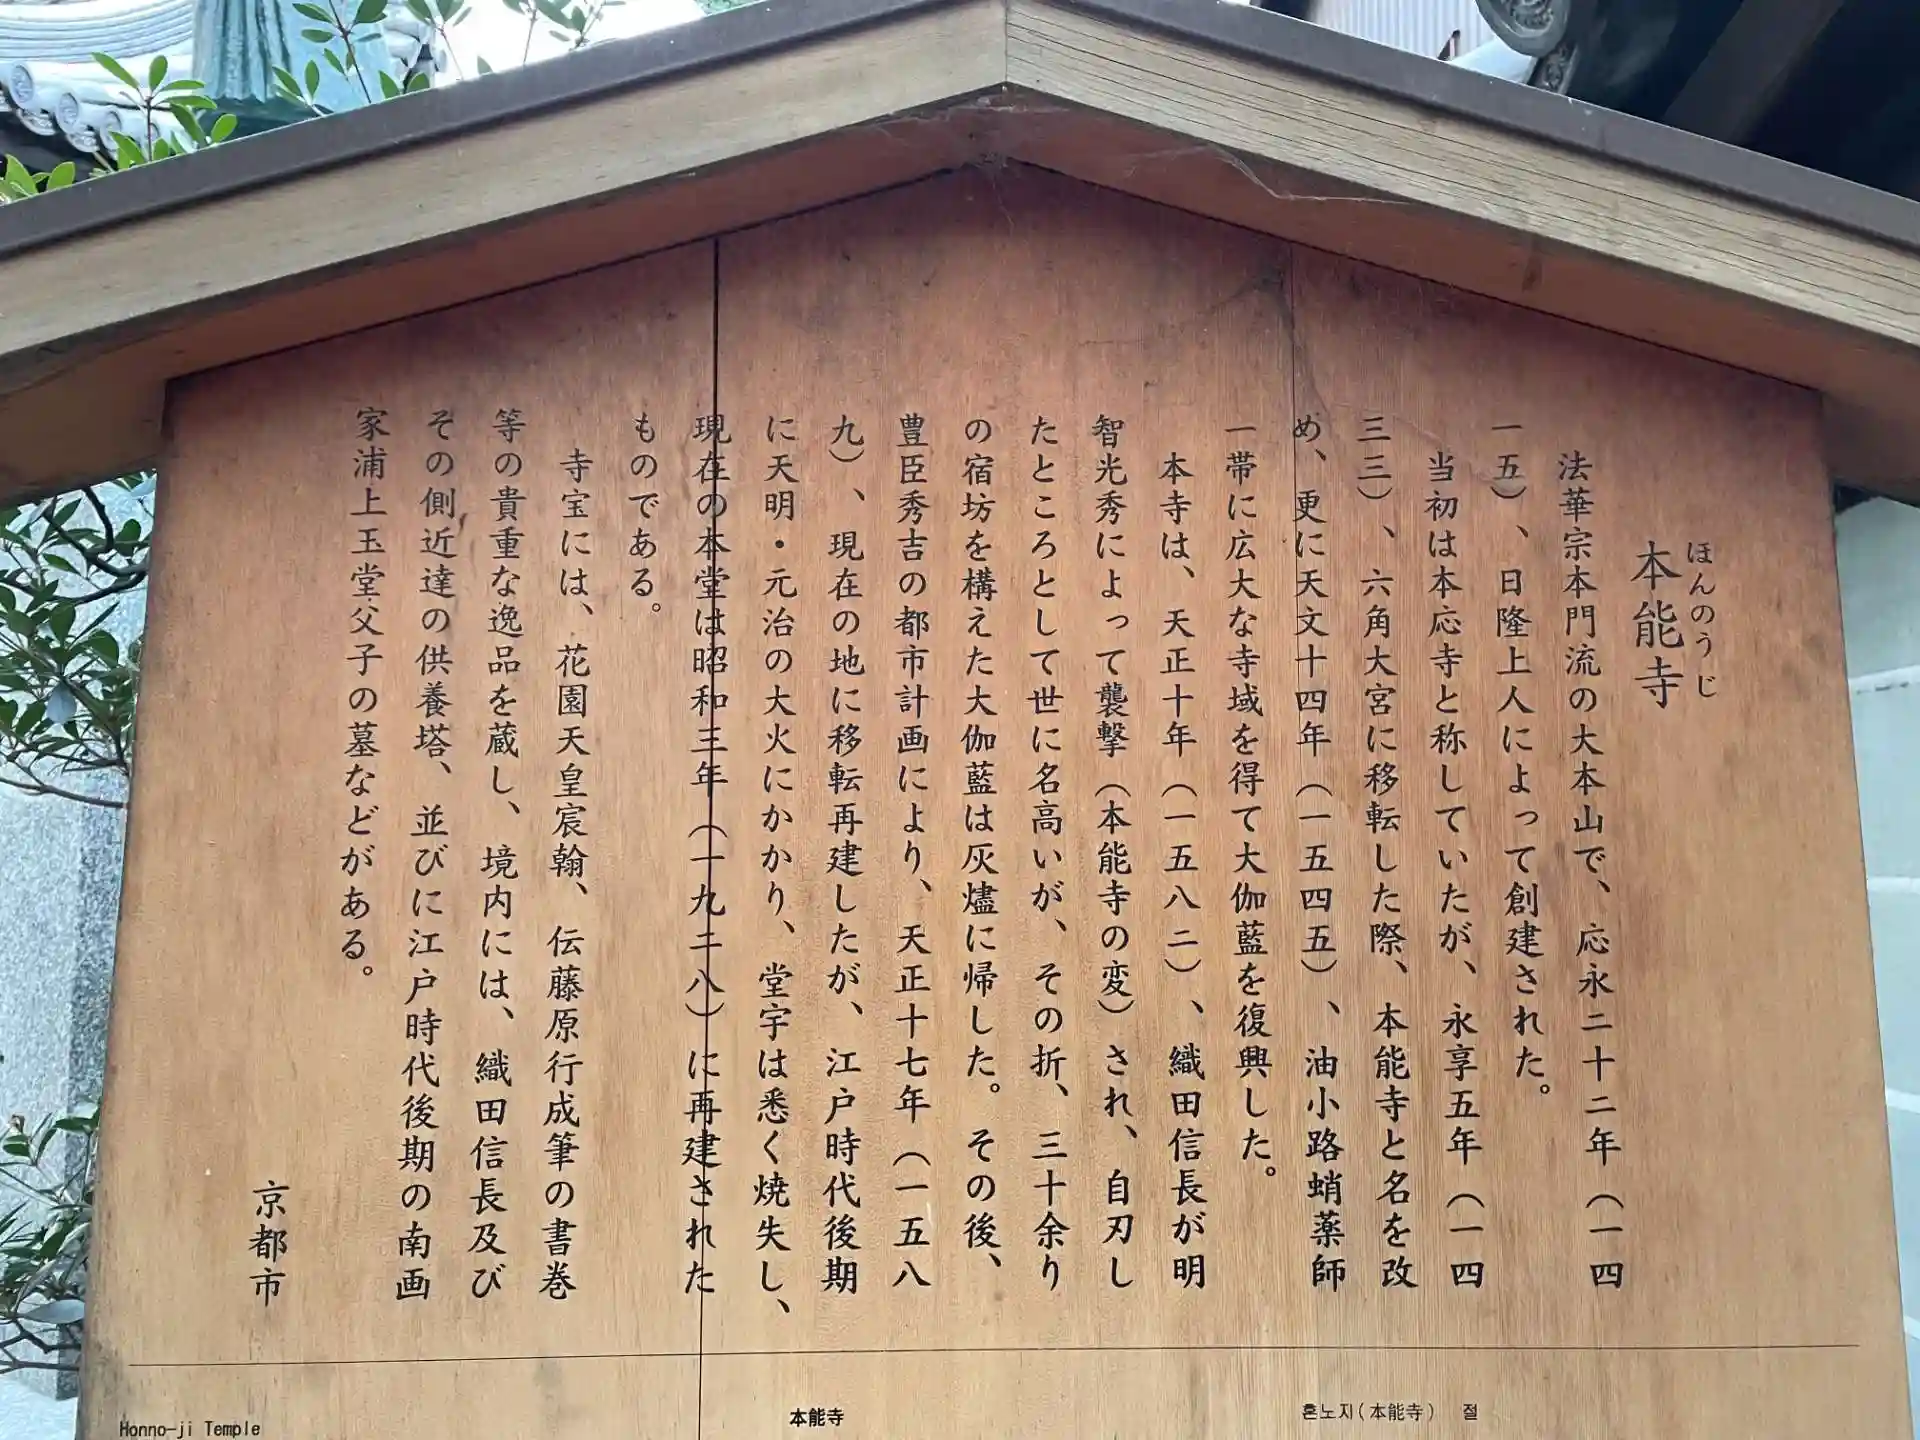 ほんのうじ
本能寺
法華宗本門流の大本山で、応永二十二年（一四
一五）、日隆上人によって創建された。
当初は本応寺と称していたが、永享五年（一四
三三）、六角大宮に移転した際、本能寺と名を改
め、更に天文十四年（一五四五）、油小路蛸薬師
一帯に広大な寺域を得て大伽藍を復興した。
本寺は、天正十年（一五八二）、織田信長が明
智光秀によって襲撃（本能寺の変）され、自刃し
たところとして世に名高いが、その折、三十余り
の宿坊を構えた大伽藍は灰燼に帰した。その後、
豊臣秀吉の都市計画により、天正十七年（一五八
九）、現在の地に移転再建したが、江戸時代後期
に天明・元治の大火にかかり、堂宇は悉く焼失し、
現在の本堂は昭和三年（一九二八）に再建された
ものである。
寺宝には、花園天皇宸翰、伝藤原行成筆の書巻
等の貴重な逸品を蔵し、境内には、織田信長及び
その側近達の供養塔、並びに江戸時代後期の南画
家浦上玉堂父子の墓などがある。
京都市
Honno-ji Temple
本能寺
혼노지(本能寺) 절